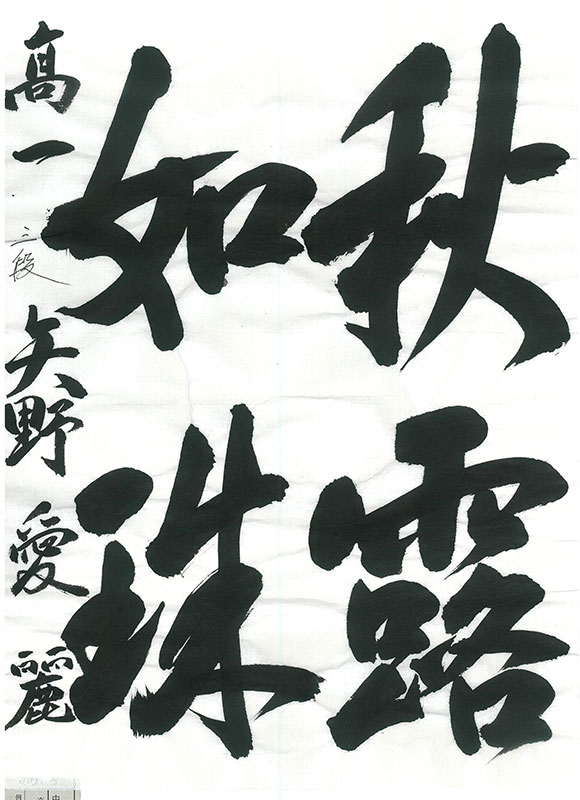 秋露
如珠
高一 三段 矢野愛麗